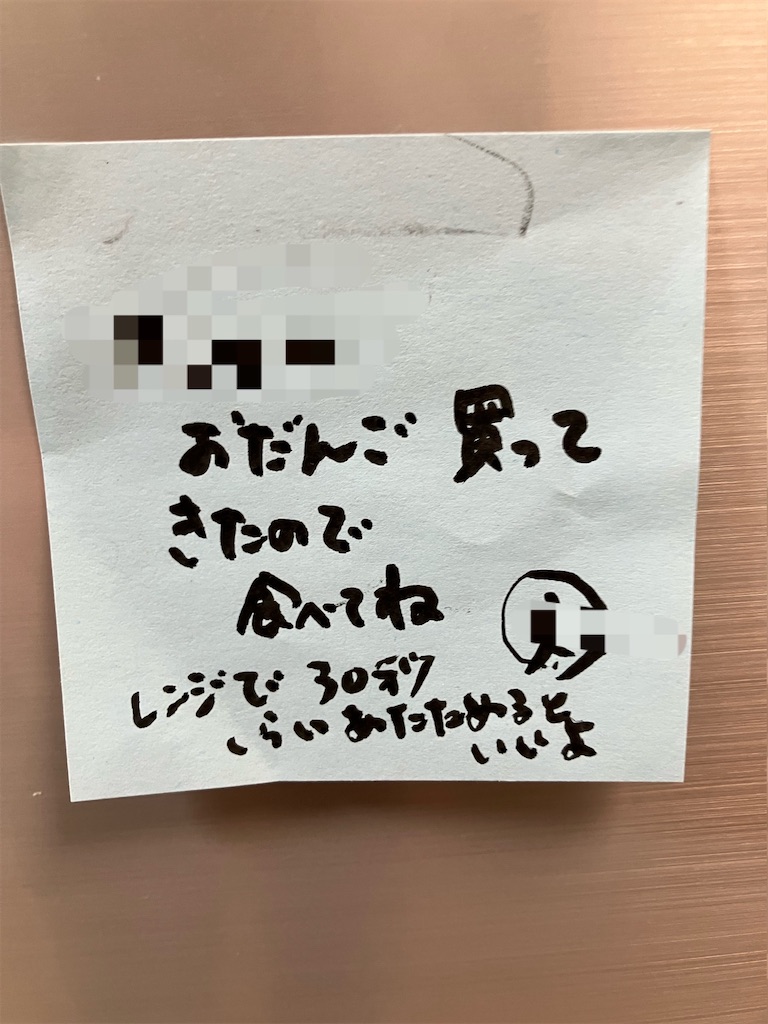 おだんご 買って
きたので
食べてね
レンジで 30秒
ぐらい あたためると
いいよ